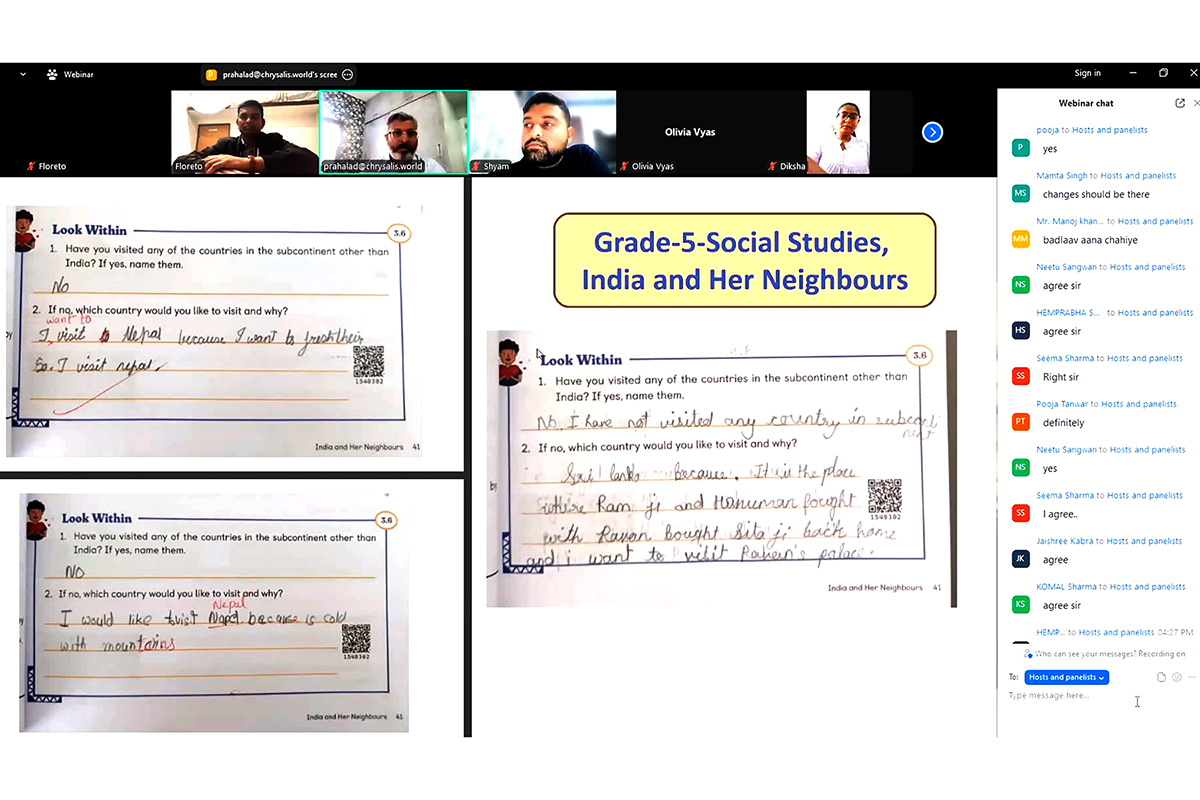 Webinar
P prahalad@chrysalis.world's scree
Sign in
Floreto
Floreto
prahalad@chrysalis.world
Shyam
Olivia Vyas
Olivia Vyas
Diksha
Look Within
3.6
1. Have you visited any of the countries in the subcontinent other than
India? If yes, name them.
No
2. If no, which country would you like to visit and why?
want to
I, visit to Nepal because I want to
So. I visit nepal.
1548302
India and Her Neighbours 41
Look Within
3.6
1. Have you visited any of the countries in the subcontinent other than
India? If yes, name them.
NO
2. If no, which country would you like to visit and why?
Nepal
I would like because is cold
with mountains
1548302
India and Her Neighbours 41
Grade-5-Social Studies,
India and Her Neighbours
Look Within
3.6
1. Have you visited any of the countries in the subcontinent other than
India? If yes, name them.
No, I have not visited any country in subconti
nent
2. If no, which country would you like to visit and why?
by
because. It is the place
where Ram ji and Hanuman fought
with Ravan bought Sita ji back home
and i want to visit Ravan's palace.
1548302
India and Her Neighbours 41
Webinar chat
pooja to Hosts and panelists
P yes
Mamta Singh to Hosts and panelists
MS changes should be there
Mr. Manoj khan... to Hosts and panelists
MM badlaav aana chahiye
Neetu Sangwan to Hosts and panelists
NS agree sir
HEMPRABHA S... to Hosts and panelists
HS agree sir
Seema Sharma to Hosts and panelists
SS Right sir
Pooja Tanwar to Hosts and panelists
PT definitely
Neetu Sangwan to Hosts and panelists
NS yes
Seema Sharma to Hosts and panelists
SS I agree..
Jaishree Kabra to Hosts and panelists
JK agree
KOMAL Sharma to Hosts and panelists
KS agree sir
HEMP... to Hosts and panelists 04:27 PM
Who can see your messages? Recording on
To: Hosts and panelists
Type message here...